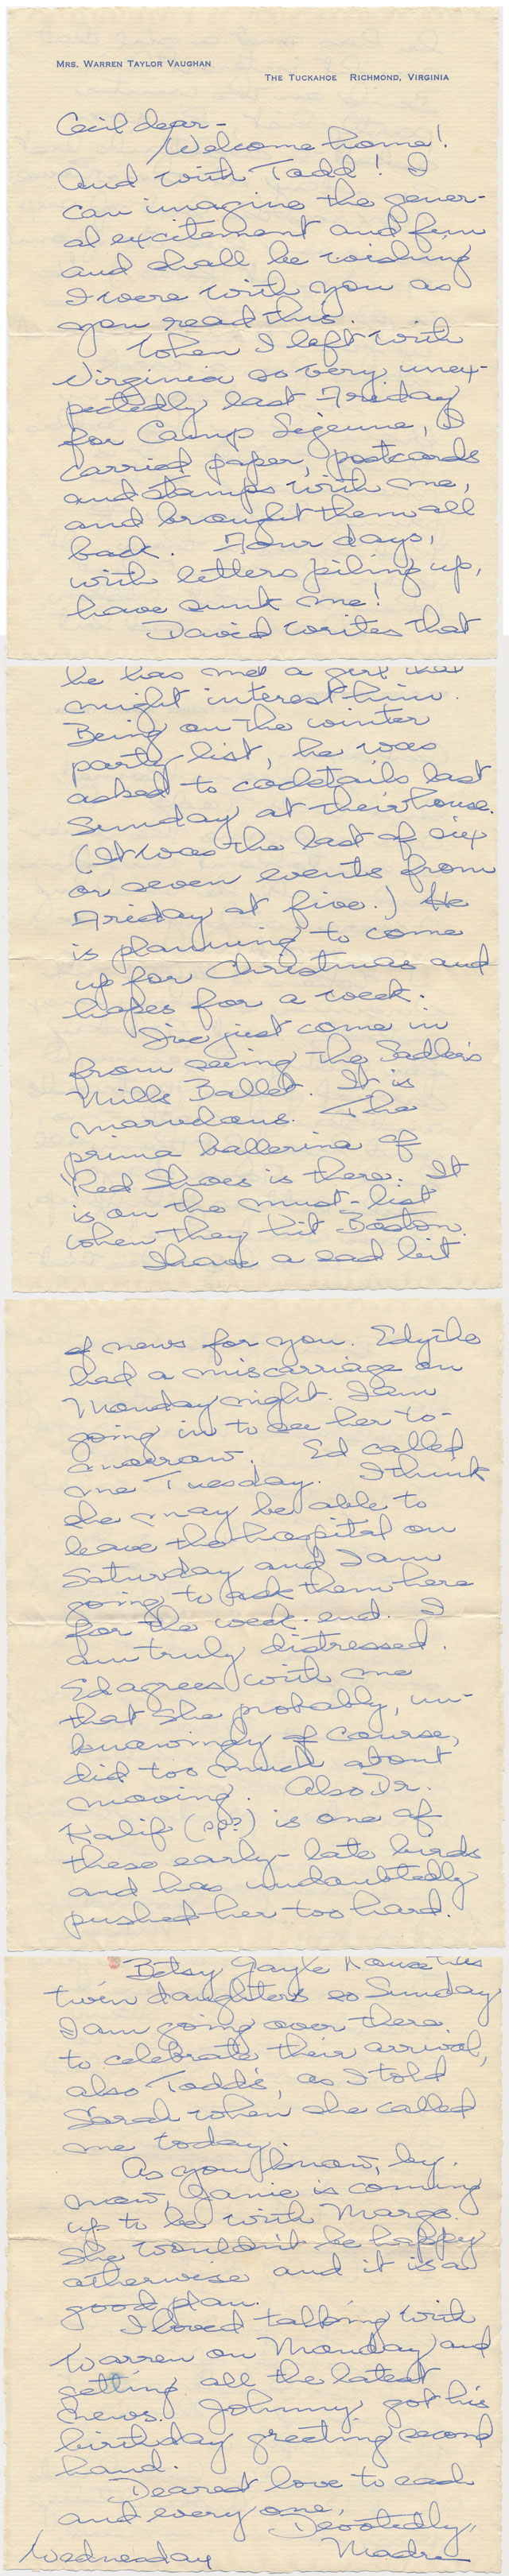 MRS. WARREN TAYLOR VAUGHAN
THE TUCKAHOE RICHMOND, VIRGINIA
Cecil dear-
Welcome home!
And with Todd! I
can imagine the gener-
al excitement and fun
and shall be wishing
I were with you as
you read this.
When I left with
Virginia so very unex-
pectedly last Friday
for Camp Lejeune, I
carried paper, postcards
and stamps with me,
and brought them all
back. Four days,
with letters piling up,
have sunk me!
David writes that
he has met a girl that
might interest him.
Being on the winter
party list, he was
asked to cocktails last
Sunday at their house.
(It was the last of six
or seven events from
Friday at five.) He
is planning to come
up for Christmas and
hopes for a week.
I've just come in
from seeing the Sadler's
Wills Ballet. It is
marvelous. The
prima ballerina of
"Red Shoes is there. It
is on the must-list
when they hit Boston.
I have a sad bit
of news for you. Edythe
had a miscarriage on
Monday night. I am
going in to see her to-
morrow. Ed called
me Tuesday. I think
she may be able to
leave the hospital on
Saturday and I am
going to ask them here
for the week-end. I
am truly distressed.
Ed agrees with me
that she probably, un-
knowingly of course,
did too much about
moving. Also Dr.
Kalif (sp?) is one of
these early-late birds
and has undoubtedly
pushed her too hard.
Betsy Gayle has
twin daughters so Sunday
I am going over there
to celebrate their arrival,
also Todd's, as I told
Sarah when she called
me today.
As you know, by
now, Janie is coming
up to be with Margo.
She wouldn't be happy
otherwise and it is a
good plan.
I loved talking with
Warren on Monday and
getting all the latest
news. Johnny got his
birthday greeting second
hand.
Dearest love to each
and every one,
Devotedly,
Madre
Wednesday